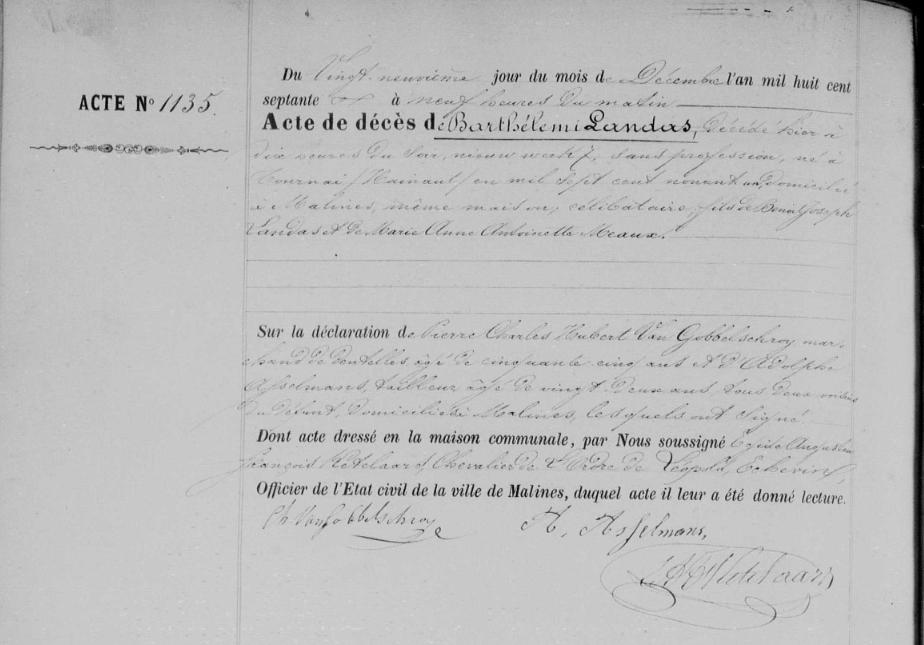 ACTE No 1135.
Du Vingt-neuvième jour du mois de Décembre l'an mil huit cent
septante à neuf heures du matin
Acte de décès de Barthélemi Landas, décédé hier à
dix heures du soir, nieuw werk 7, sans profession, né à
Tournai (Hainaut) en mil sept cent nonant un, domicilié
à Malines, même maison, célibataire, fils de Joseph
Landas et de Marie Anne Antoinette Meaux.
Sur la déclaration de Pierre Charles Hubert Van Gobbelschroy mar-
chand de dentelles, âgé de cinquante cinq ans et d'Adolphe
Asselmans, tailleur âgé de vingt-deux ans, tous deux voisins
du défunt, domiciliés à Malines, lesquels ont signé
Dont acte dressé en la maison communale, par Nous soussigné Egide Augustin
François Ketelaars Chevalier de l'Ordre de Léopold, Echevin,
Officier de l'Etat civil de la ville de Malines, duquel acte il leur a été donné lecture.
Ch. Van Gobbelschroy A. Asselmans,